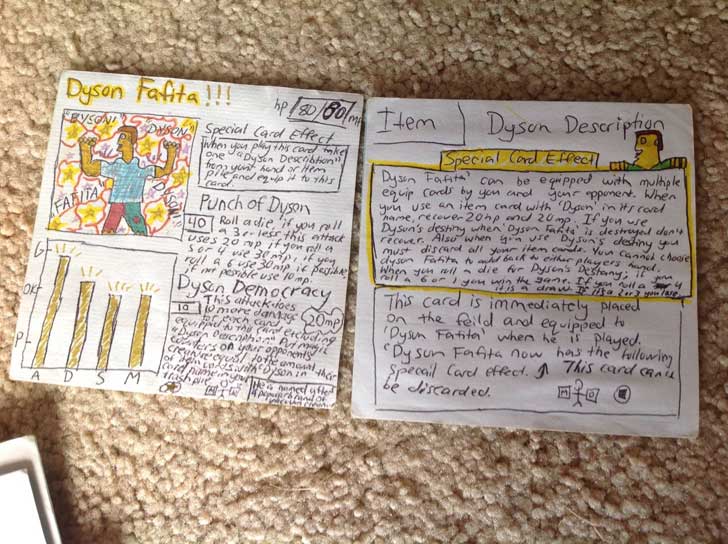 Dyson Fafita!!!
hp 80/80 mp
"DYSON!"
"DYSON"
"FAFITA"
"DYSON!"
Special Card Effect
When you play this card take
one "Dyson Description"
from your hand or Item
pile and equip it to this
card.
Punch of Dyson
40 Roll a die if you roll
a 3 or less this attack
uses 20 mp if you roll a
5 or 4 use 30 mp. if you
roll a 6 use 30mp if possible
if not possible use 10 mp.
Dyson Democracy
10 This attack does
10 more damage
each card
equipped to this card excluding
"Dyson Description". Put
counters on your opponents
creature equal to the amount
cards with Dyson in
card name
20mp
He is named after
a popular brand of
vacuum cleaner
G
OK
P
A D S M
Item
Dyson Description
Special Card Effect
Dyson Fafita' can be equipped with multiple
equip cards by you and your opponent. When
you use an item card with 'Dyson' in its card
name, recover 20hp and 20mp. If you use
Dyson's destiny when 'Dyson Fafita' is destroyed don't
recover. Also when you use Dyson's destiny you
must discard all your item cards. You cannot choose
Dyson Fafita to add back to either players hand.
When you roll a die for Dyson's Destany; if you
roll a 6 or 1 you win the game. If you roll a 4
it is a 2 or 3 you lose
This card is immediately placed
on the feild and equipped to
'Dyson Fafita' when he is played.
'Dyson Fafita now has the following
Specail Card effect. This card can't
be discarded.